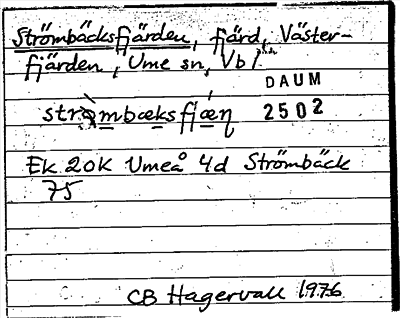 Strömbäcksfjärden, fjärd, Väster-
fjärden, Ume sn, Vb l
DAUM
strømbæksfjæɳ 2502
Ek 20K Umeå 4d Strömbäck
75
CB Hagervall 1976